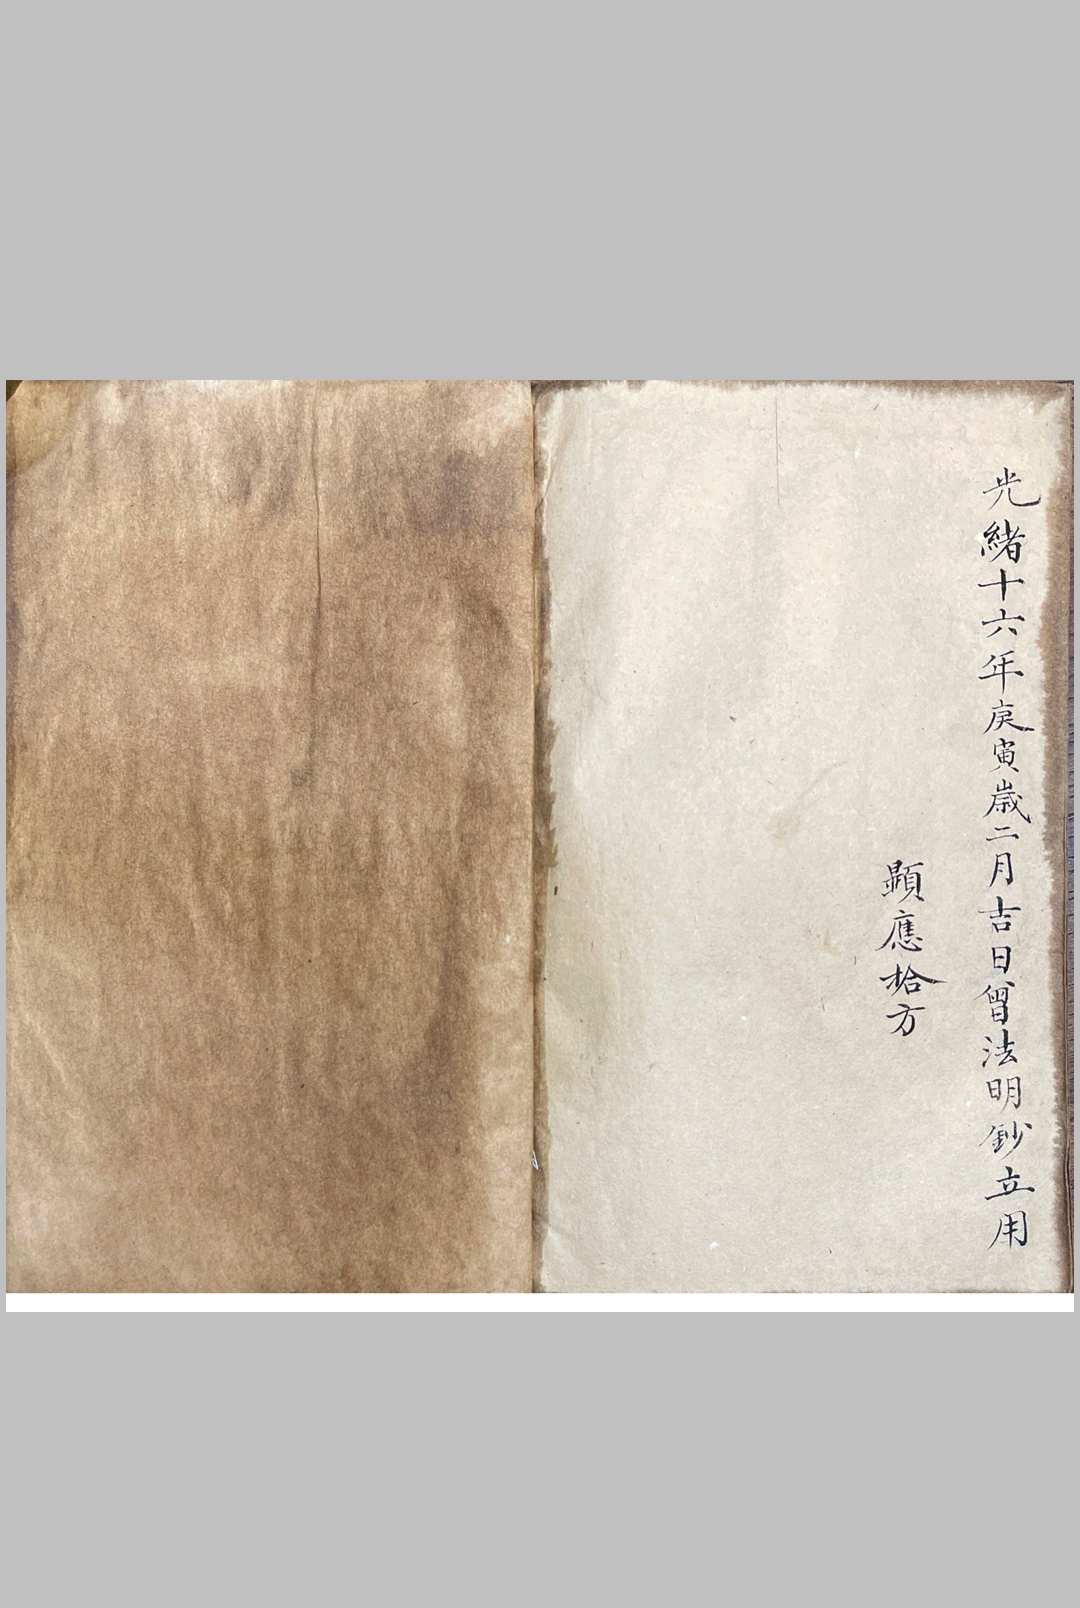 光緒十六年庚寅歲二月吉日曾法明鈔立用
顯應拾方